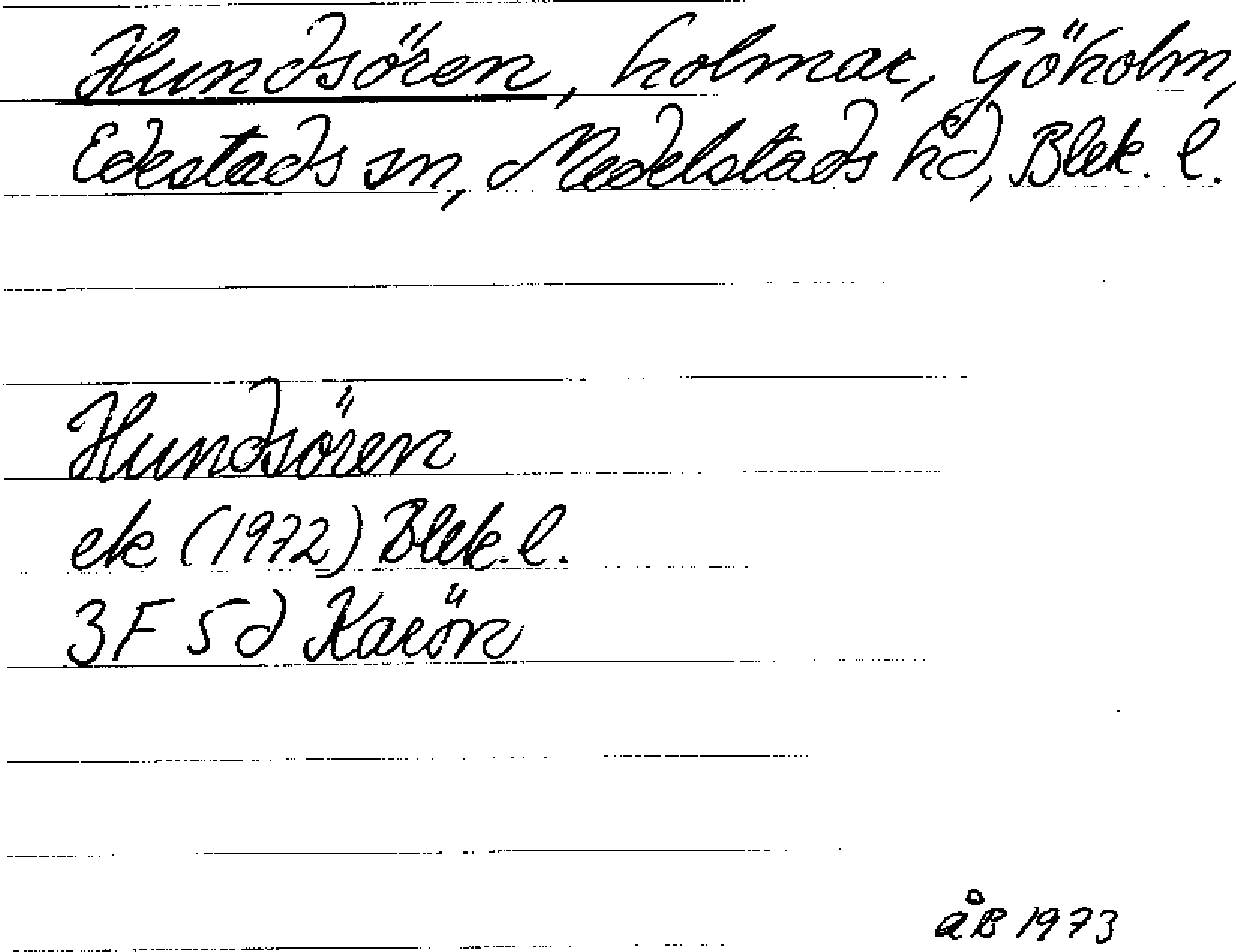 Hundsören, holmar, Göholm,
Edestads sn, Medelstads hd, Blek. l.
Hundsören
ek (1972) Blek. l.
3F 5d Karön
åB 1973